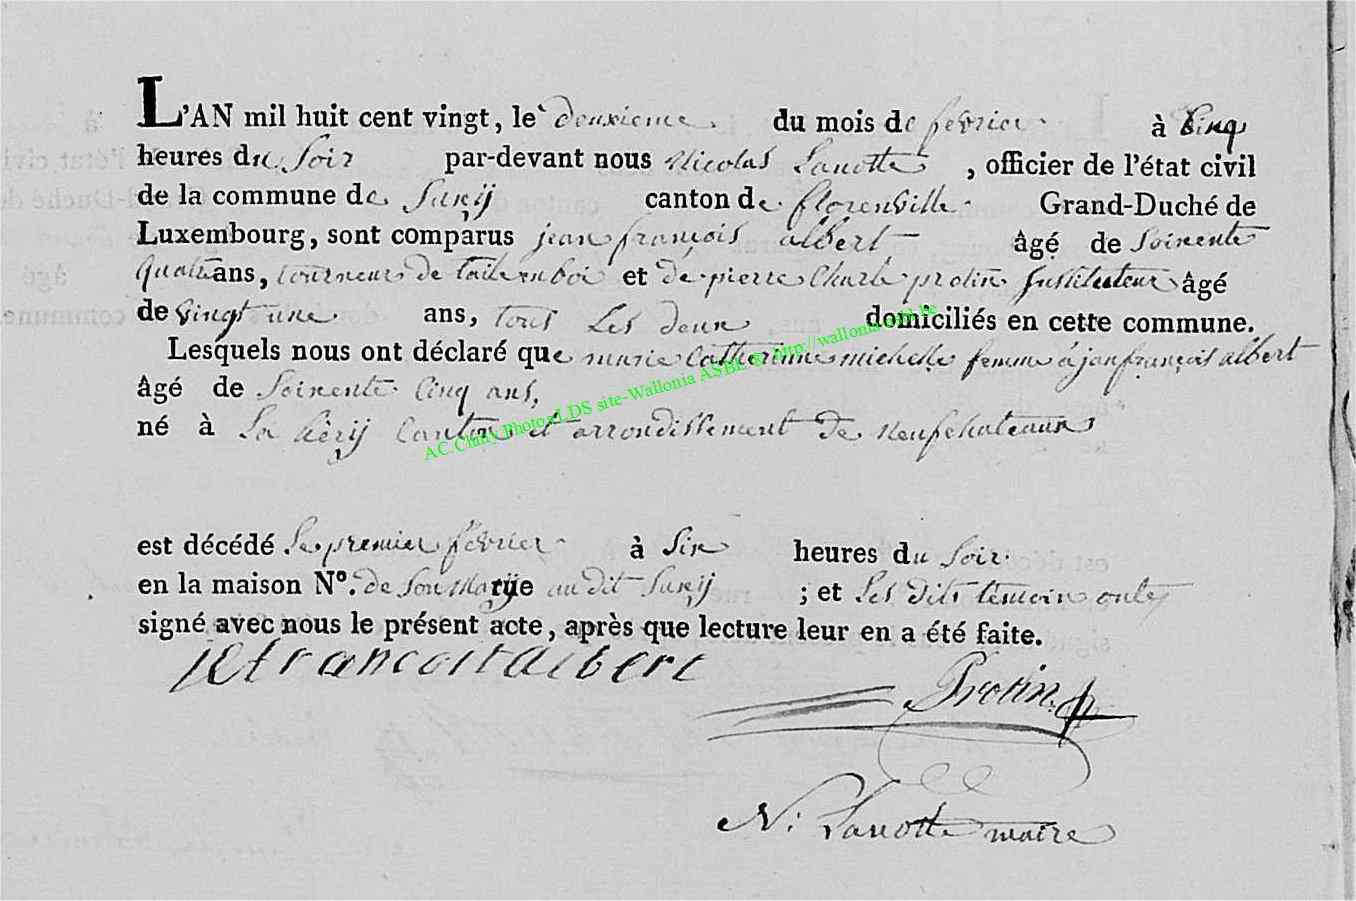 L'AN mil huit cent vingt, le deuxieme du mois de février à Cinq
heures du Soir par-devant nous Nicolas Lanotte, officier de l'état civil
de la commune de Suxij canton de florenville Grand-Duché de
Luxembourg, sont comparus jean françois albert âgé de Soixente
quatre ans, tourneur de taile en boi et de pierre Charle protin Justituteur âgé
de vingt une ans, tous Les deux domiciliés en cette commune.
Lesquels nous ont déclaré que marie Catherinne michelle femme à jean françois albert
âgé de Soixente Cinq ans,
né à La hèrij Canton et arrondissement de Neufchateaux
AC.Chiny Photos LDS site-Wallonia ASBL © http://wallonia-asbl.be
est décédé Le premier février à Six heures du Soir
en la maison N°. de Son Marije au dit Suxij ; et Les dits temoin onts
signé avec nous le présent acte, après que lecture leur en a été faite.
albert Protin
N: Lanotte maire